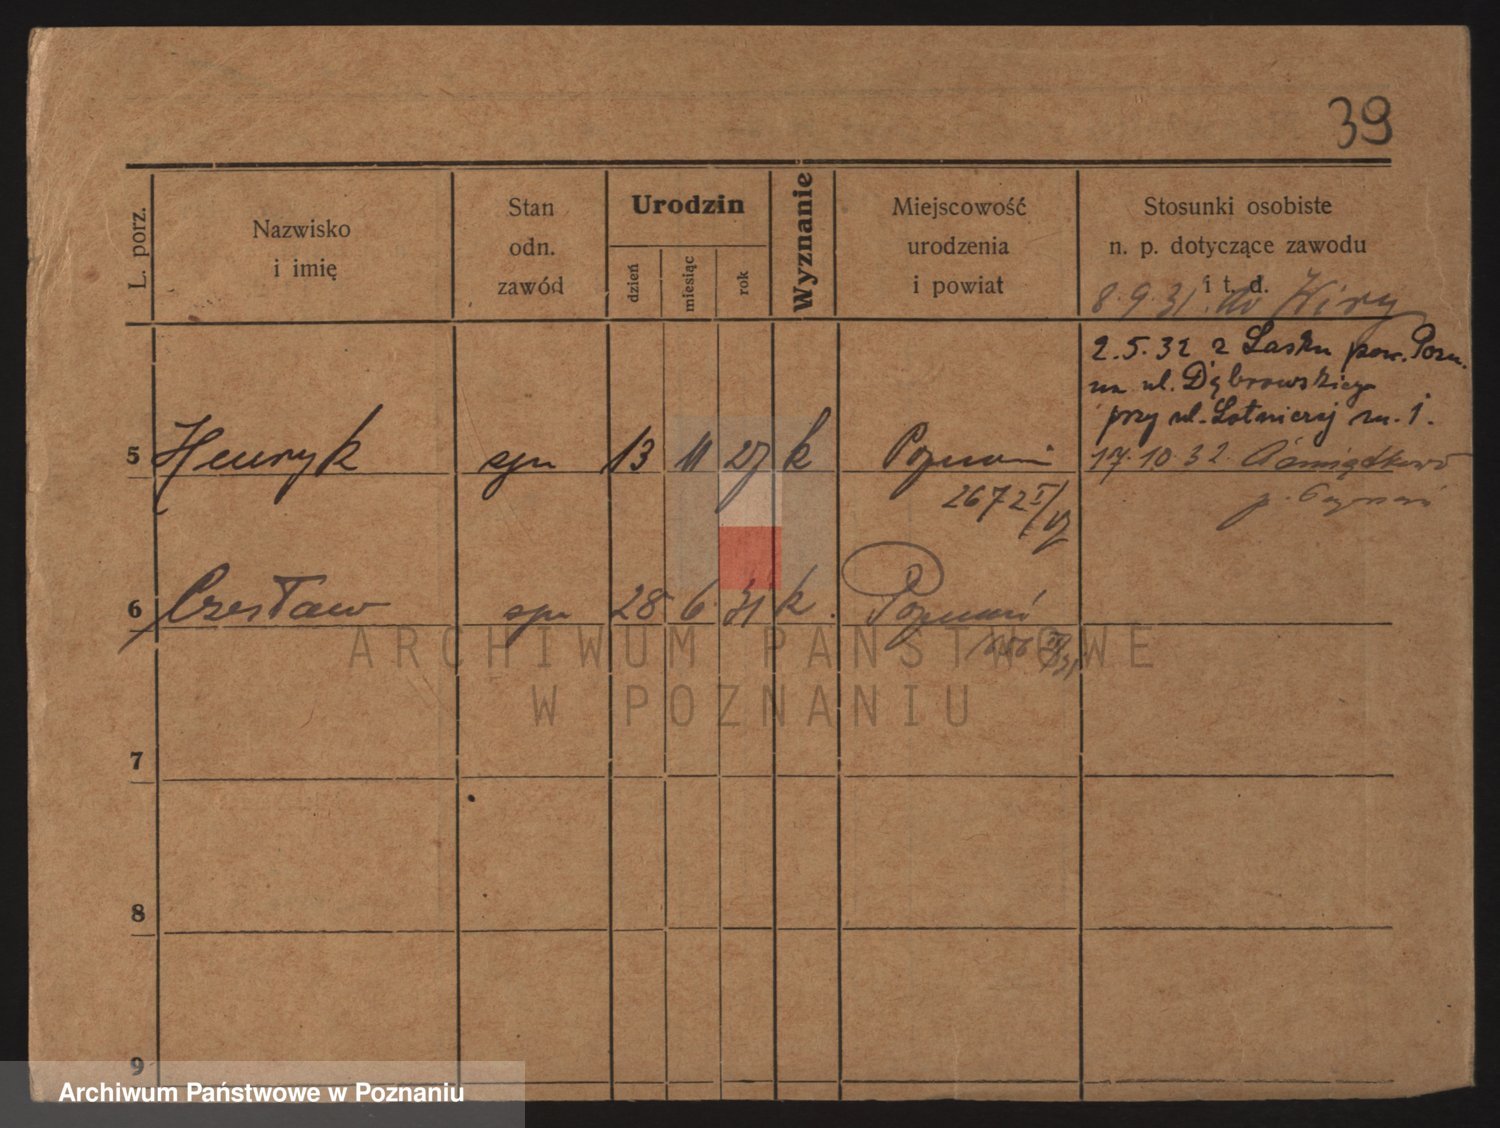 39
L. porz.
Nazwisko
i imię
Stan
odn.
zawód
Urodzin
dzień
miesiąc
rok
Wyznanie
Miejscowość
urodzenia
i powiat
Stosunki osobiste
n. p. dotyczące zawodu
i t. d.
8.9.31. do Wiry
2.5.32 z Lasku pow. Pozn.
na ul. Dąbrowskiego
przy ul. Lotniczej m. 1.
5 Henryk syn 13 11 27 k Poznań 17.10.32
2672 I/27
6 Czesław syn 28 6 31 k. Poznań
ARCHIWUM PAŃSTWOWE
W POZNANIU
7
8
9
Archiwum Państwowe w Poznaniu